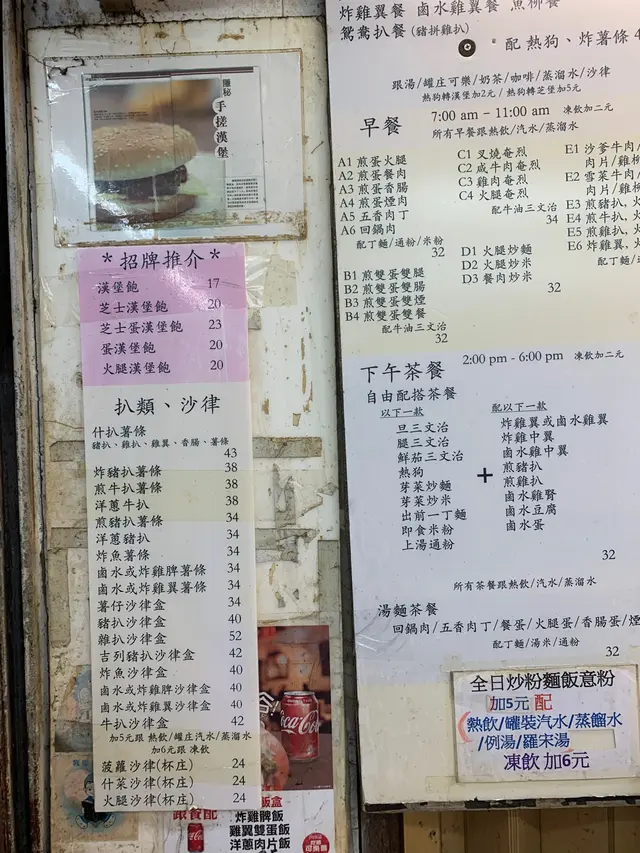 隱秘
手搓漢堡
*招牌推介*
漢堡飽 17
芝士漢堡飽 20
芝士蛋漢堡飽 23
蛋漢堡飽 20
火腿漢堡飽 20
扒類、沙律
什扒薯條
豬扒、雞扒、雞翼、香腸、薯條
43
炸豬扒薯條 38
煎牛扒薯條 38
洋蔥牛扒 38
煎豬扒薯條 34
洋蔥豬扒 34
炸魚薯條 34
鹵水或炸雞脾薯條 34
鹵水或炸雞翼薯條 34
薯仔沙律盒 34
豬扒沙律盒 40
雜扒沙律盒 52
吉列豬扒沙律盒 42
炸魚沙律盒 40
鹵水或炸雞脾沙律盒 40
鹵水或炸雞翼沙律盒 40
牛扒沙律盒 42
加5元跟 熱飲/罐庄汽水/蒸溜水
加6元跟 凍飲
菠蘿沙律(杯庄) 24
什菜沙律(杯庄) 24
火腿沙律(杯庄) 24
Coca-Cola
跟餐配
飯盒
炸雞髀飯
雞翼雙蛋飯
洋蔥肉片飯
炸雞翼餐 鹵水雞翼餐 魚柳餐
鴛鴦扒餐(豬拼雞扒)
配 熱狗、炸薯條 4
跟湯/罐庄可樂/奶茶/咖啡/蒸溜水/沙律
熱狗轉漢堡加2元 / 熱狗轉芝堡加5元
早餐
7:00 am – 11:00 am 凍飲加二元
所有早餐跟熱飲/汽水/蒸溜水
A1 煎蛋火腿
A2 煎蛋餐肉
A3 煎蛋香腸
A4 煎蛋煙肉
A5 五香肉丁
A6 回鍋肉
配丁麵/通粉/米粉
32
B1 煎雙蛋雙腿
B2 煎雙蛋雙腸
B3 煎雙蛋雙煙
B4 煎雙蛋雙餐
配牛油三文治
32
C1 叉燒奄烈
C2 咸牛肉奄烈
C3 雞肉奄烈
C4 火腿奄烈
配牛油三文治
34
D1 火腿炒麵
D2 火腿炒米
D3 餐肉炒米
32
E1 沙爹牛肉/
肉片/雞柳
E2 雪菜牛肉/
肉片/雞
E3 煎豬扒,火
E4 煎牛扒,火
E5 煎雞扒,火
E6 炸雞翼,火
配丁
下午茶餐
2:00 pm - 6:00 pm 凍飲加二元
自由配搭茶餐
以下一款
旦三文治
腿三文治
鮮茄三文治
熱狗
芽菜炒麵
芽菜炒米
出前一丁麵
即食米粉
上湯通粉
+
配以下一款
炸雞翼或鹵水雞翼
炸雞中翼
鹵水雞中翼
煎豬扒
煎雞扒
鹵水雞腎
鹵水豆腐
鹵水蛋
32
所有茶餐跟熱飲/汽水/蒸溜水
湯麵茶餐
回鍋肉/五香肉丁/餐蛋/火腿蛋/香腸蛋/煙
配丁麵/湯米/通粉
32
全日炒粉麵飯意粉
加5元 配
熱飲/罐裝汽水/蒸餾水
/例湯/羅宋湯
凍飲 加6元